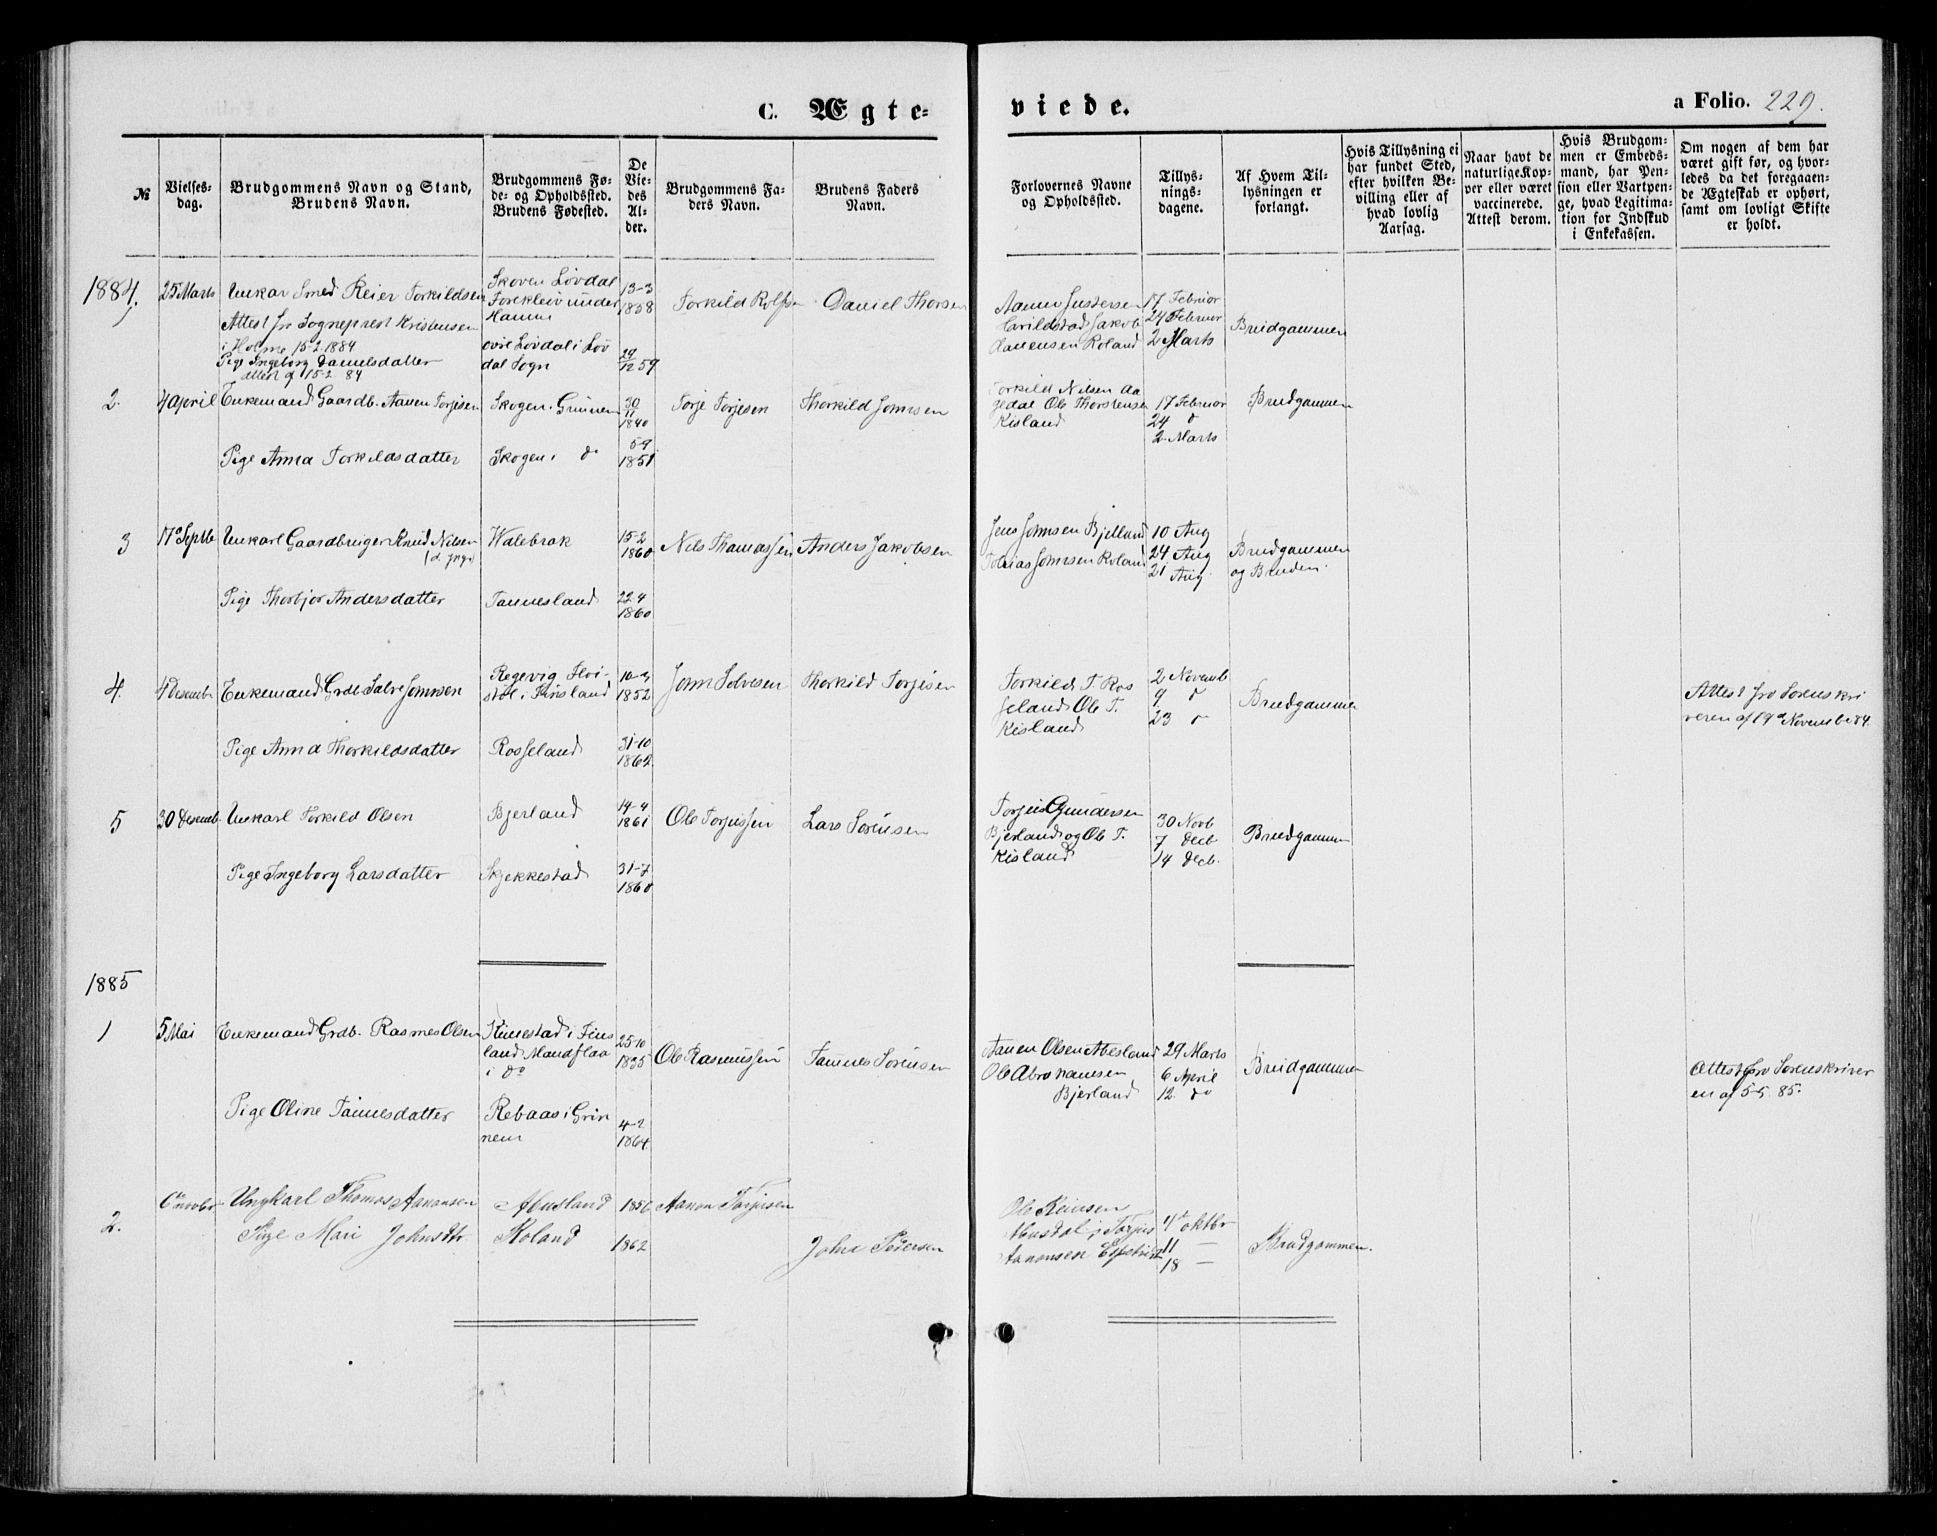 C. Ægte-
viede.
a Folio. 229.
№
Vielses-
dag.
Brudgommens Navn og Stand,
Brudens Navn.
Brudgommens Fø-
de- og Opholdssted.
Brudens Fødested.
De
Vie-
des
Al-
der.
Brudgommens Fa-
ders Navn.
Brudens Faders
Navn.
Forlovernes Navne
og Opholdssted.
Tillys-
nings-
dagene.
Af Hvem Til-
lysningen er
forlangt.
Hvis Tillysning ei
har fundet Sted,
efter hvilken Be-
villing eller af
hvad lovlig
Aarsag.
Naar havt de
naturlige Kop-
per eller været
vaccinerede.
Attest derom.
Hvis Brudgom-
men er Embeds-
mand, har Pen-
sion eller Vartpen-
ge, hvad Legitima-
tion for Indskud
i Enkekassen.
Om nogen af dem har
været gift før, og hvor-
ledes da det foregaaen-
de Ægteskab er ophørt,
samt om lovligt Skifte
er holdt.
1884.
25 Marts
Unkar Smed Reier Torkildsen
Attest fra Sogneprest Kristensen
i Holme 15-2 1884
Pige Ingeborg Danielsdatter
attest af 15-2 84
Skoven Løvdal
under
Løvdal i Løv
dal Sogn
13-3
1838
29
12 59
Torkild Rolfsen
Daniel Thorsen
Aanen
Jakob
Roland
17 Februar
24 Februar
2 Marts
Brudgammen
2.
4 April
Enkemand Gaardb. Aanen Torjesen
Pige Anna Torkildsdatter
Skogen i
Skogen i do
30
11
1840
5-9
1851
Torje Torjesen
Thorkild Jomsen
Torkild Nilsen Aa
gedal Ole Thorstensen
Kisland
17 Februar
24 d
2 Marts
Brudgammen
3
17 Septb
Unkarl Gaardbruger Knud Nilsen
Pige Thorbjor Andersdatter
Walebrak
Tannesland
15-2
1860
22 4
1860
Nils Thamassen
Anders Jakobsen
Jens Jomsen Bjelland
Tobias Jomsen Roland
10 Aug
24 Aug
21 Aug.
Brudgammen
og Bruden.
4.
4 Desemb
Enkemand Grdb. Salve Jomsen
Pige Anna Thorkildsdatter
Regevig Flei-
støl i Finsland
Rosseland
10-9
1852
31-10
1862
Jom Solvesen
Thorkild Torjesen
Torkild T. Ros
seland Ole T.
Kisland
2 Novemb
9 d
23 d
Brudgammen
Attest fra Sorenskri
veren af 19 November 84.
5
30 Desemb
Unkarl Torkild Olsen
Pige Ingeborg Larsdatter
Bjerland
Skjekkestad
14-4
1861
31-7
1860
Ole Torjussen
Lars Sorensen
Torjus Gundersen
Bjerland og Ole T.
Kisland
30 Novb
7 Decb
14 Decb.
Brudgammen
1885
1
5 Mai
Enkemand Grdb. Rasmes Olsen
Pige Oline Tannesdatter
Kinestad i Fins
land Mandflaa
i do
Rebaas i Grin
nem
25-10
1835
4-2
1864
Ole Rasmussen
Tannes Sorensen
Aanen Olsen Abesland
Ole Abrahamsen
Bjerland
29 Marts
6 April
12. do
Brudgammen
Attest fra Sorenskriver
en af 5-5. 85.
2.
6te novbr
Ungkarl Thomas Aanonsen
Pige Mari Johnsdtr
Abusland
Roland
1856
1862
Aanon Torjusen
John Pedersen
Ole Reiersen
Torjus
Aanonsen
4de oktbr
11 —
18 —
Brudgommen.